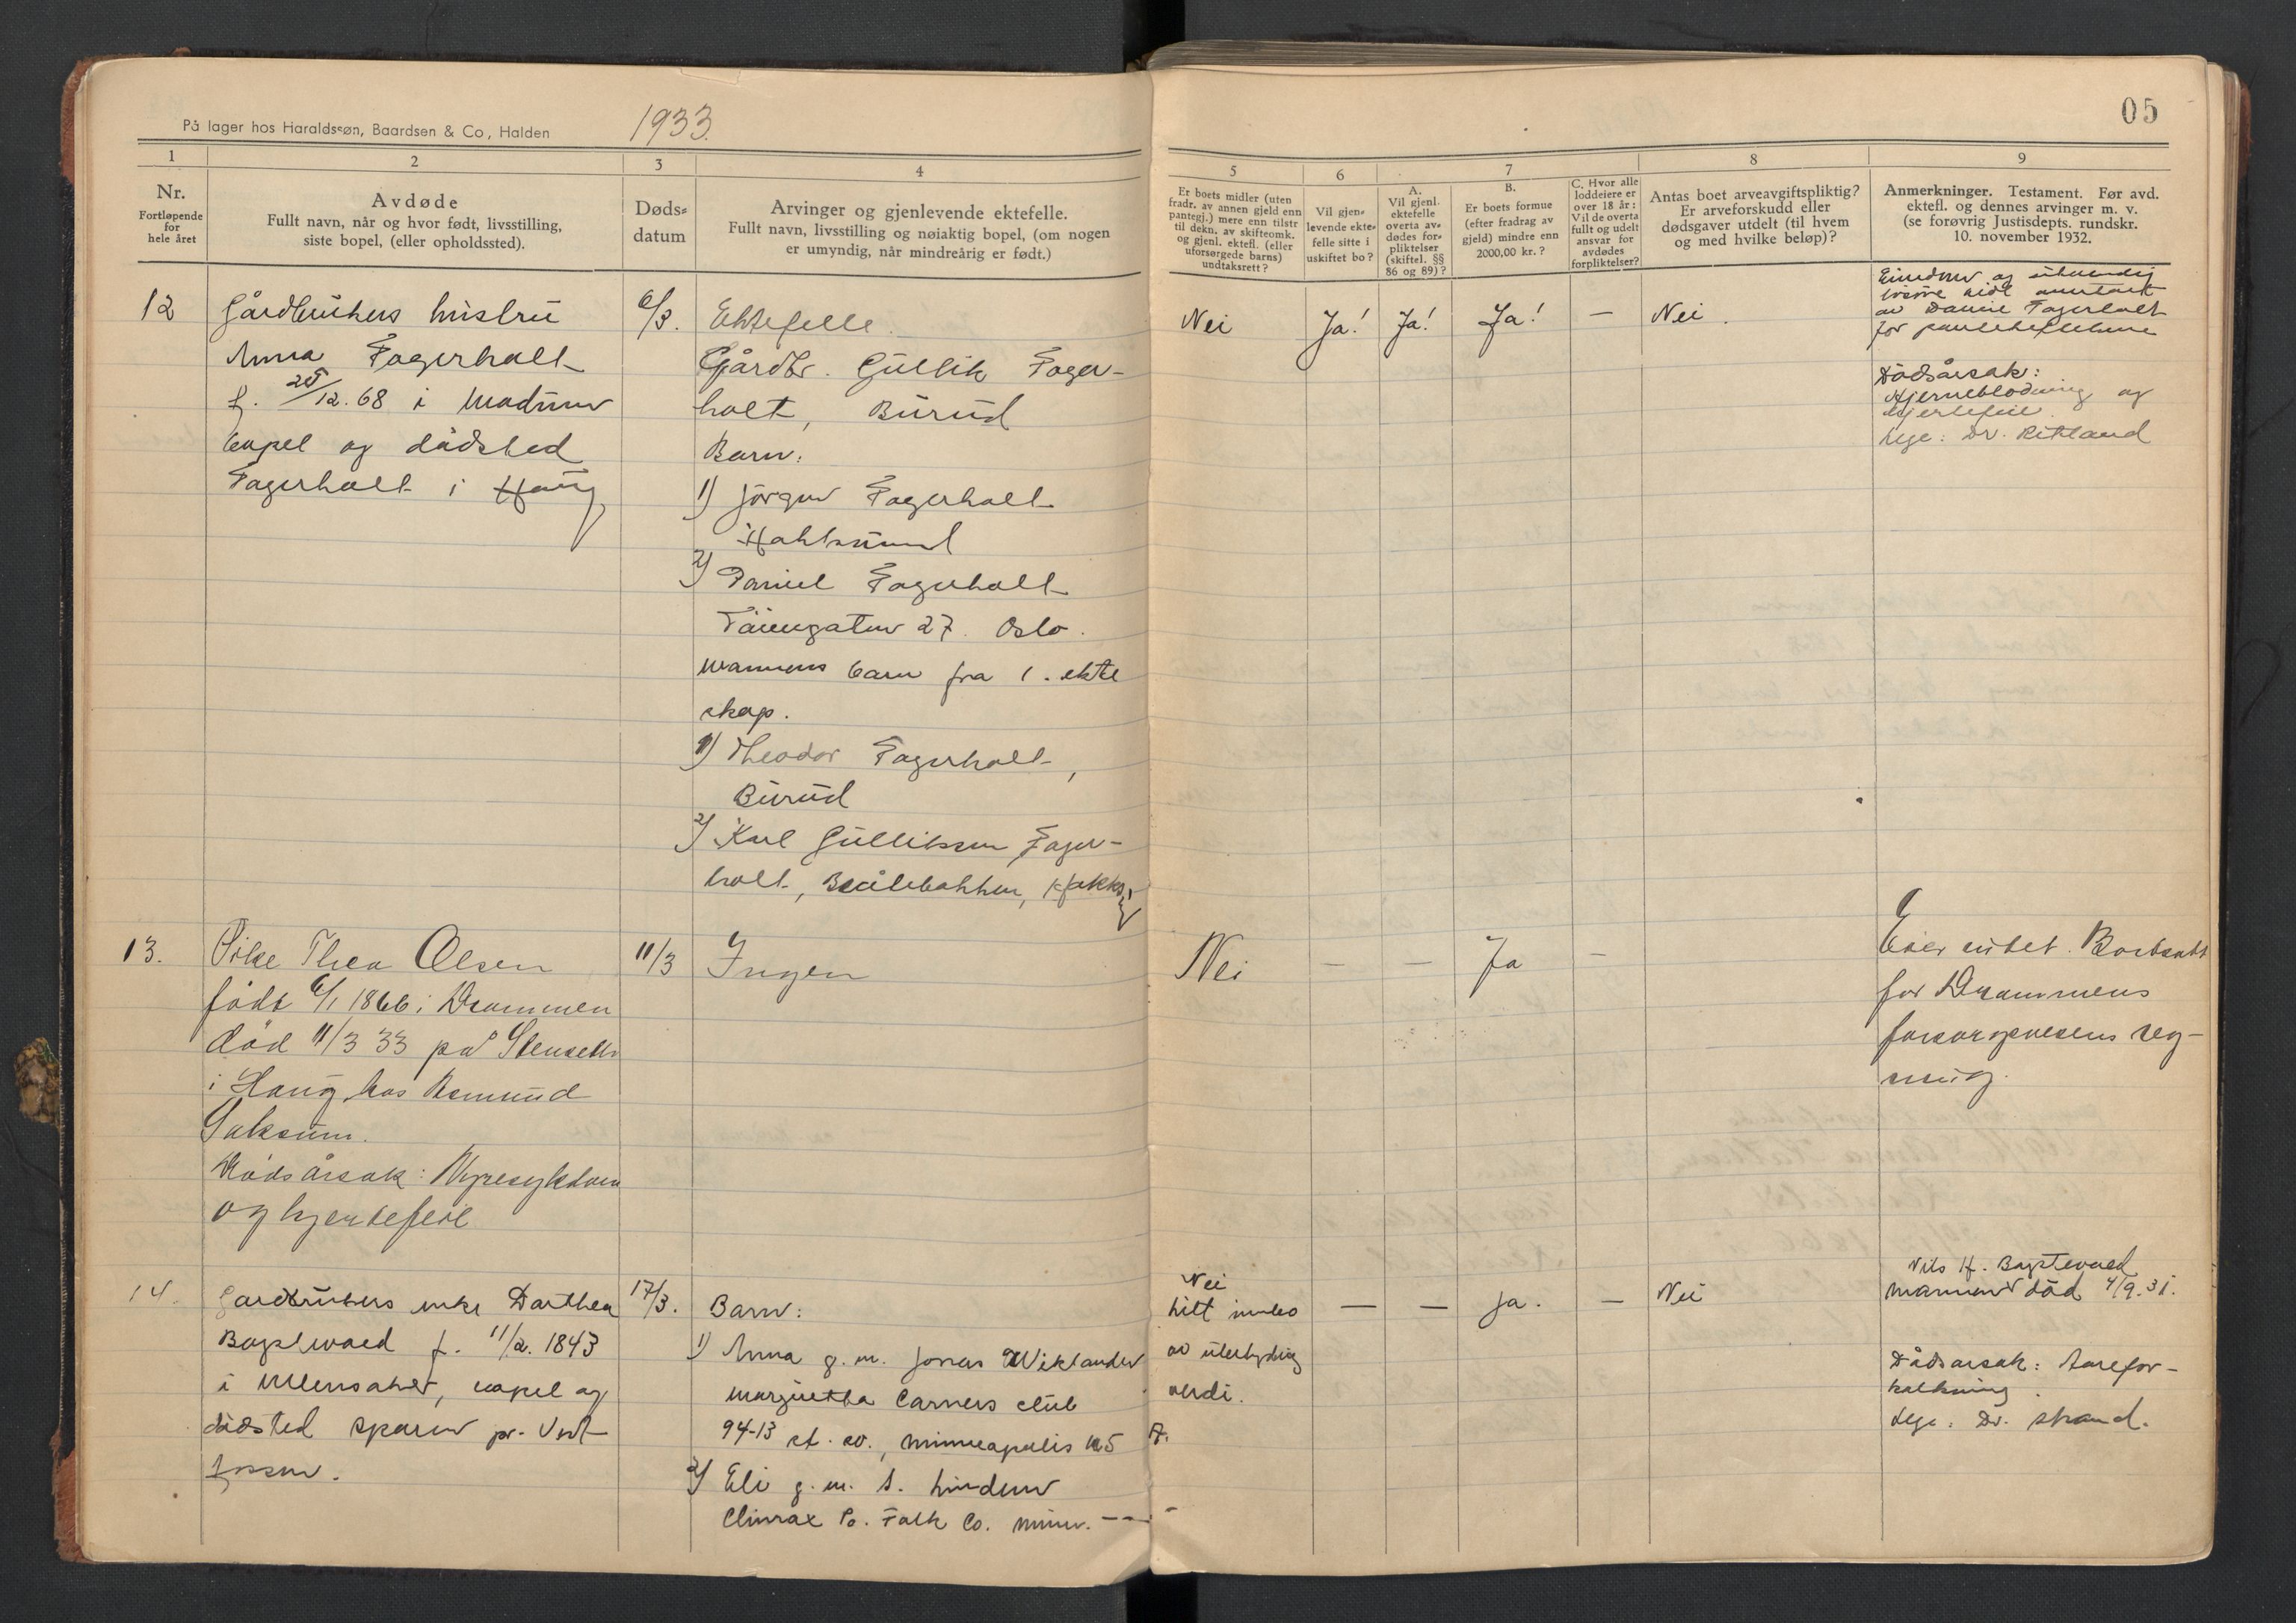 På lager hos Haraldssøn, Baardsen & Co, Halden
1933.
05
1
2
3
4
5
6
7
8
9
Nr.
Fortløpende
for
hele året
Avdøde
Fullt navn, når og hvor født, livsstilling,
siste bopel, (eller opholdssted).
Døds-
datum
Arvinger og gjenlevende ektefelle.
Fullt navn, livsstilling og nøiaktig bopel, (om nogen
er umyndig, når mindreårig er født.)
Er boets midler (uten
fradr. av annen gjeld enn
pantegj.) mere enn tilstr
til dekn. av skifteomk.
og gjenl. ektefl. (eller
uforsørgede barns)
undtaksrett?
Vil gjen-
levende ekte-
felle sitte i
uskiftet bo?
A.
Vil gjenl.
ektefelle
overta av-
dødes for-
pliktelser
(skiftel. §§
86 og 89)?
B.
Er boets formue
(efter fradrag av
gjeld) mindre enn
2000,00 kr.?
C. Hvor alle
loddeiere er
over 18 år:
Vil de overta
fullt og udelt
ansvar for
avdødes
forpliktelser?
Antas boet arveavgiftspliktig?
Er arveforskudd eller
dødsgaver utdelt (til hvem
og med hvilke beløp)?
Anmerkninger. Testament. Før avd.
ektefl. og dennes arvinger m. v.
(se forøvrig Justisdepts. rundskr.
10. november 1932.
12
Gårdbrukers hustru
Anna Fagerholt
f. 25/12.68 i Modum
bopel og dødsted
Fagerholt i Haug
6/3.
Ektefelle.
Gårdbr. Gullik Fager-
holt, Burud
Barn:
1) Jörgen Fagerholt
Hokksund
2) Daniel Fagerholt
Töiengaten 27. Oslo.
Mannens barn fra 1. ekte
skap.
1) Theodor Fagerholt,
Burud
2) Karl Gulliksen Fager-
holt, Hokks.
Nei
Ja!
Ja!
Ja!
—
Nei.
Eiendom og
av Daniel Fagerholt
for
Dödsårsak:
Hjerneblödning og
hjertefeil.
Lege: Dr. Rikland
13.
Pike Thea Olsen
födt 6/1 1866 i Drammen
död 11/3 33 på Stenseth
i Haug hos Asmund
Saksum.
Dödsårsak: Nyresykdom
og hjertefeil
11/3
Ingen
Nei
—
—
Ja
—
Eier intet. Bortsatt
for Drammens
forsorgsvesens reg-
ning.
14.
Gardbrukers enke Dorthea
f. 11/2. 1843
i Ullensaker, bopel og
dödsted pr. Vest-
fossen.
17/3.
Barn:
1) Anna g. m. Jonas Wiklander
Carners club
94-13 st. so., Minneapolis U.S.A.
2) Eli g. m. S. Linden
Climax Po. Falk Co. Minn. — — -
Nei
Litt innbo
av ubetydelig
verdi.
—
—
Ja.
—
Nei
Nils H.
mannen död 4/9.31.
Dödsarsak: Aarefor-
kalkning.
Lege: Dr. Strand.